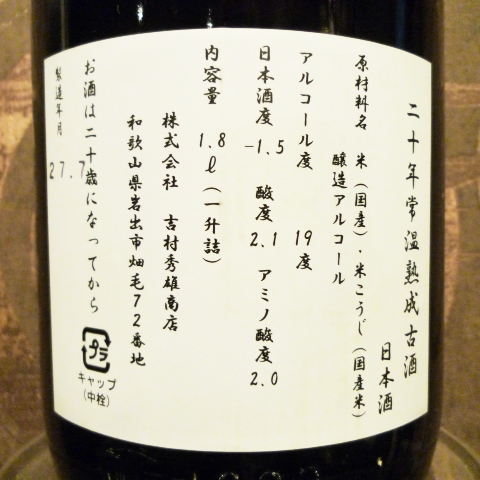 二十年常温熟成古酒
日本酒
原材料名 米(国産)・米こうじ(国産米)
醸造アルコール
アルコール度 19度
日本酒度 -1.5 酸度 2.1 アミノ酸度 2.0
内容量 1.8ℓ(一升詰)
株式会社 吉村秀雄商店
和歌山県岩出市畑毛72番地
お酒は二十歳になってから
製造年月 27.7
プラ
キャップ
(中栓)